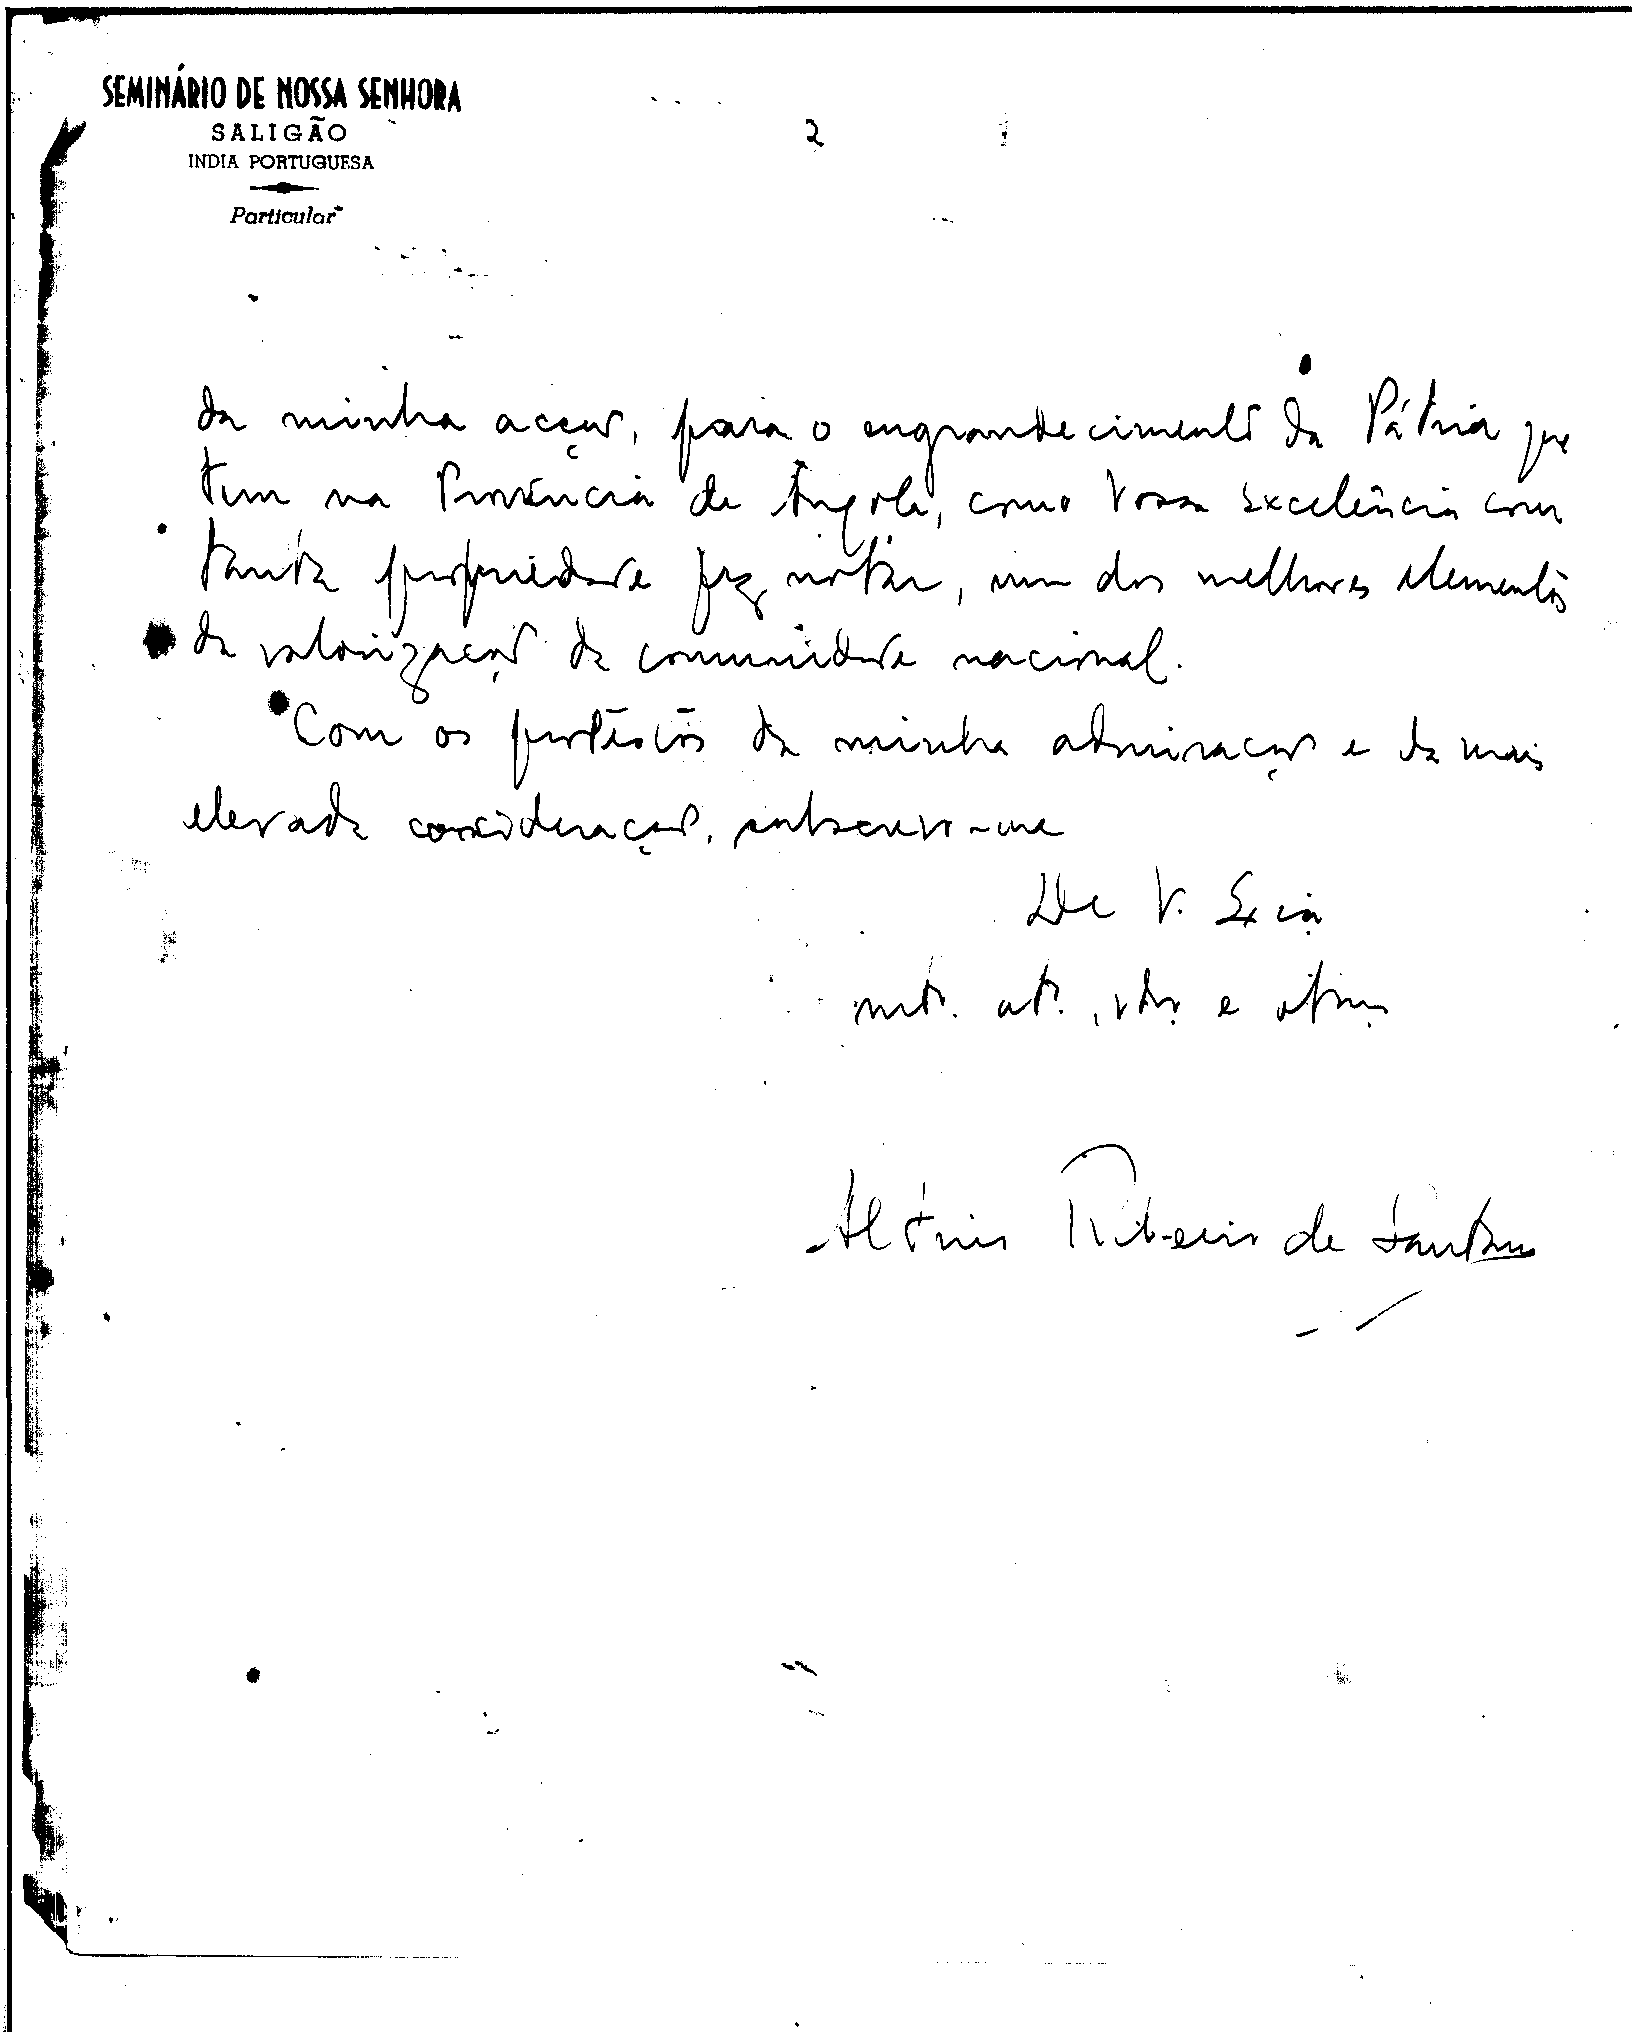 SEMINÁRIO DE NOSSA SENHORA
SALIGÃO
INDIA PORTUGUESA
Particular
2
da minha acção, para o engrandecimento da Pátria que
tem na Província de Angola, como Vossa Excelência com
tanta propriedade faz notar, um dos melhores elementos
da valorização da comunidade nacional.
Com os protestos da minha admiração e da mais
elevada consideração, subscrevo-me
De V. Excia
mto. ato., vdor e
Ribeiro de Santana